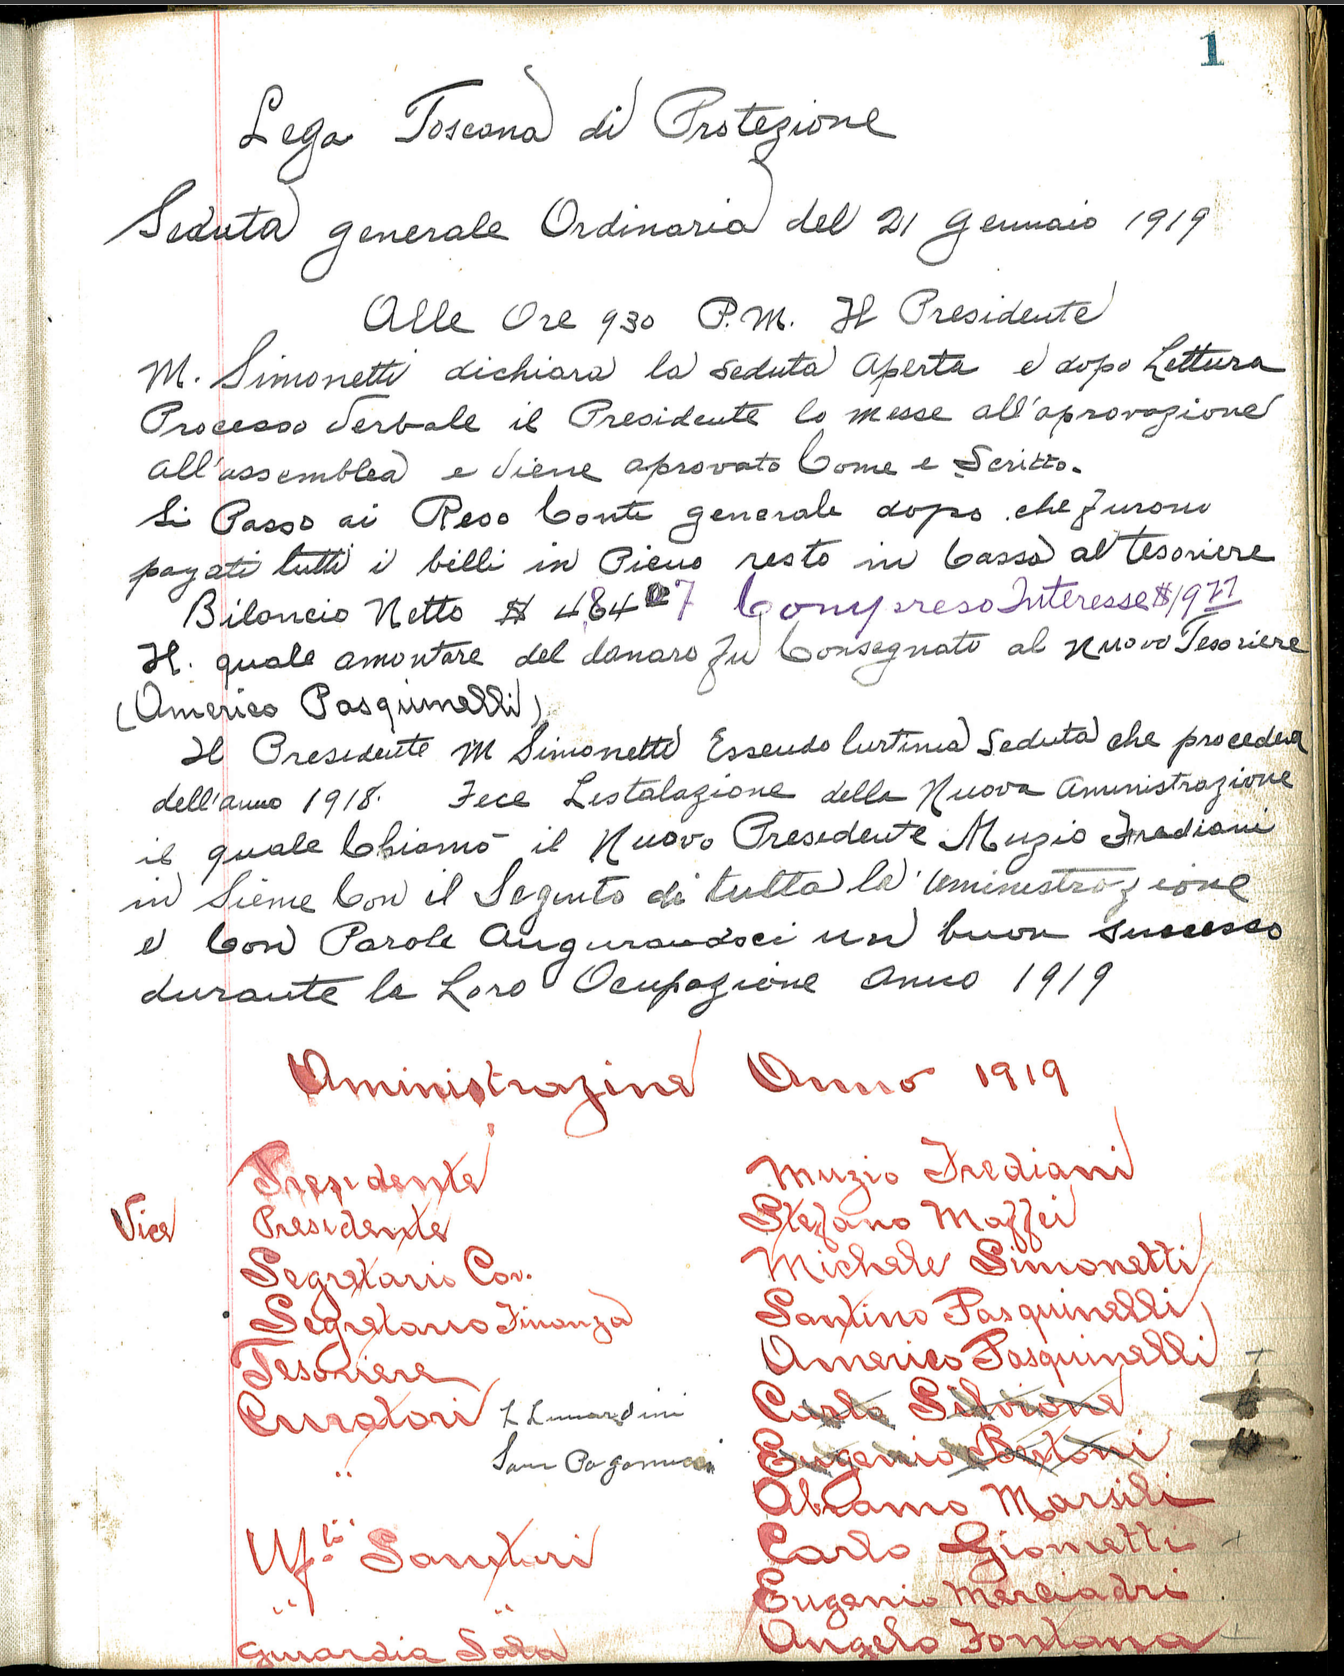 1
Lega Toscana di Protezione
Seduta generale Ordinaria del 21 Gennaio 1919
Alle Ore 930 P.M. Il Presidente
M. Simonetti dichiara la seduta aperta e dopo Lettura
Processo Verbale il Presidente lo messe all'aprovazione
all'assemblea e viene aprovato Come e Scritto.
Si Passo ai Reso Conti generale dopo che furono
pagati tutti i billi in Pieno resto in Cassa al tesoriere
Bilancio Netto $ 484 07 Compreso Interesse $19 77
Il. quale amontare del danaro fu Consegnato al nuovo Tesoriere
(Americo Pasquinelli)
Il Presidente M Simonetti Essendo lurtima Seduta che procedeva
dell'anno 1918. Fece Lestalazione della Nuova aministrazione
il quale Chiamo il Nuovo Presidente Muzio Frediani
in Sieme Con il Seguito di tutta la aministrazione
e Con Parole Augurandoci un buon successo
durante la Loro Ocupazione anno 1919
Aministrazine Anno 1919
Presidente Muzio Frediani
Vice Presidente Stefano Maffei
Segretario Cor. Michele Simonetti
Segretario Finanza Santino Pasquinelli
Tesoriere Americo Pasquinelli
Curatori L Lunardini Carlo
Sam Paganucci Eugenio Bertoni
" Abramo Marsili
Uf.li Sanitari Carlo Giometti
" " Eugenio Merciadri
guardia Sala Angelo Fontana